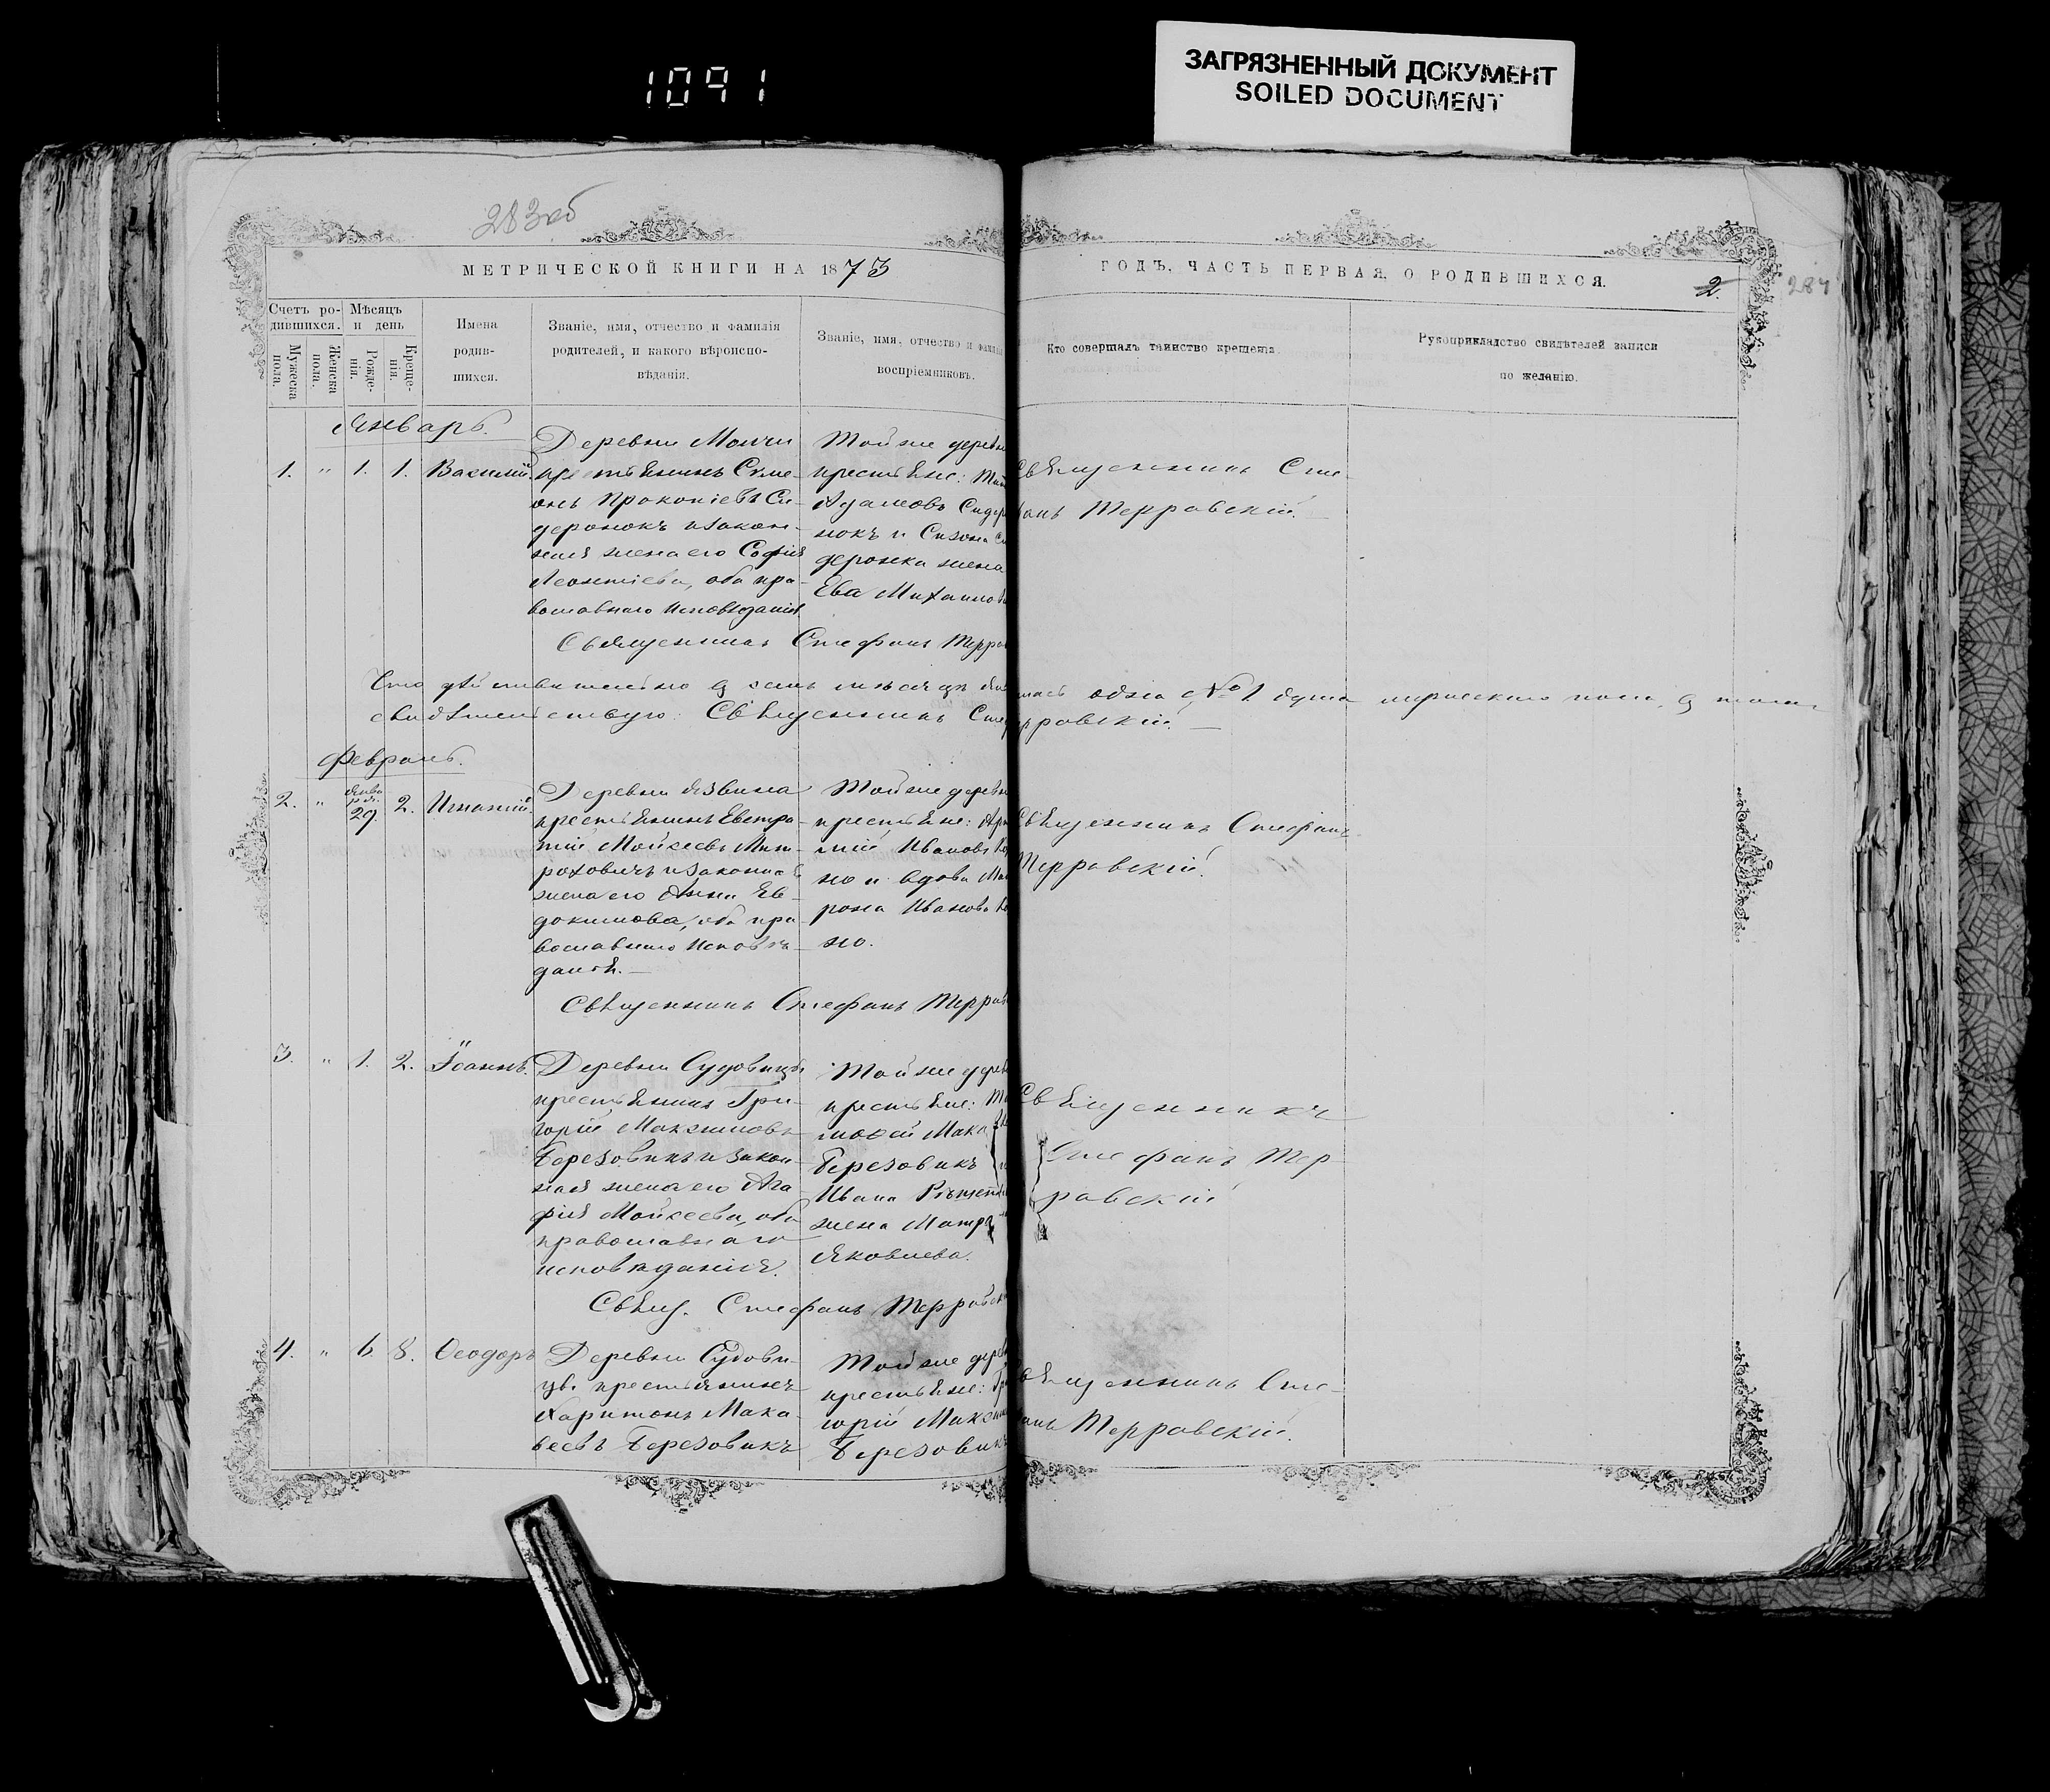 1091
ЗАГРЯЗНЕННЫЙ ДОКУМЕНТ
SOILED DOCUMENT
283об
МЕТРИЧЕСКОЙ КНИГИ НА 1873
ГОДЪ, ЧАСТЬ ПЕРВАЯ, О РОДИВШИХСЯ.
2.
284
Счетъ ро-
дившихся.
Мужеска
пола.
Женска
пола.
Мѣсяцъ
и день
Рожде-
нія.
Креще-
нія.
Имена
родив-
шихся.
Званіе, имя, отчество и фамилія
родителей, и какого вѣроиспо-
вѣданія.
Званіе, имя, отчество и фамилі
воспріемниковъ.
Кто совершалъ таинство крещенія.
Рукоприкладство свидѣтелей записи
по желанію.
Январь.
1. " 1. 1. Василій.
Деревни
крестьянинъ Симе-
онъ Прокопіевъ Си-
деронокъ и закон-
ная жена его Софія
Леонтіева, оба пра-
вославнаго исповѣданія
Той же деревн
крестьяне:
Адамовъ Сидер
нокъ и Сизона Си
деронка жена
Ева Михаилов
Священникъ Сте
фанъ Терравскій.
Священникъ Стефанъ Террав
Что дѣйствительно въ семъ мѣсяцѣ
лась одна №1 душа мужескаго пола, въ томъ
свидѣтельствую: Священникъ Сте
рравскій.
Февраль.
2. " Янва
ря.
29. 2. Игнатій.
Деревни Язвина
крестьянинъ Евстра-
тій Мойсеевъ Мит-
роховичъ и законная
жена его Анна Ев-
докимова, оба пра-
вославнаго исповѣ-
данія.
Той же деревн
крестьяне:
мій Ивановъ
но и вдова Мат
рона Иванова
но.
Священникъ Стефанъ
Терравскій.
Священникъ Стефанъ Террав
3. " 1. 2. Іоаннъ.
Деревни Судовицы
крестьянинъ Гри-
горій Максимовъ
Березовикъ и закон-
ная жена его Ага
фія Мойсеева, оба
православнаго
исповѣданія.
Той же дерев
крестьяне: Ти
мофей Мака
Березовикъ
Ивана
жена Матр
Яковлева.
Священникъ
Стефанъ Тер
равскій
Свящ. Стефанъ Терравск
4. " 6. 8. Ѳеодоръ
Деревни Судови-
цы крестьянинъ
Харитонъ Мака-
веевъ Березовикъ
Той же дерев
крестьяне: Гри
горій Максим
Березовикъ
Священникъ Сте-
фанъ Терравскій.